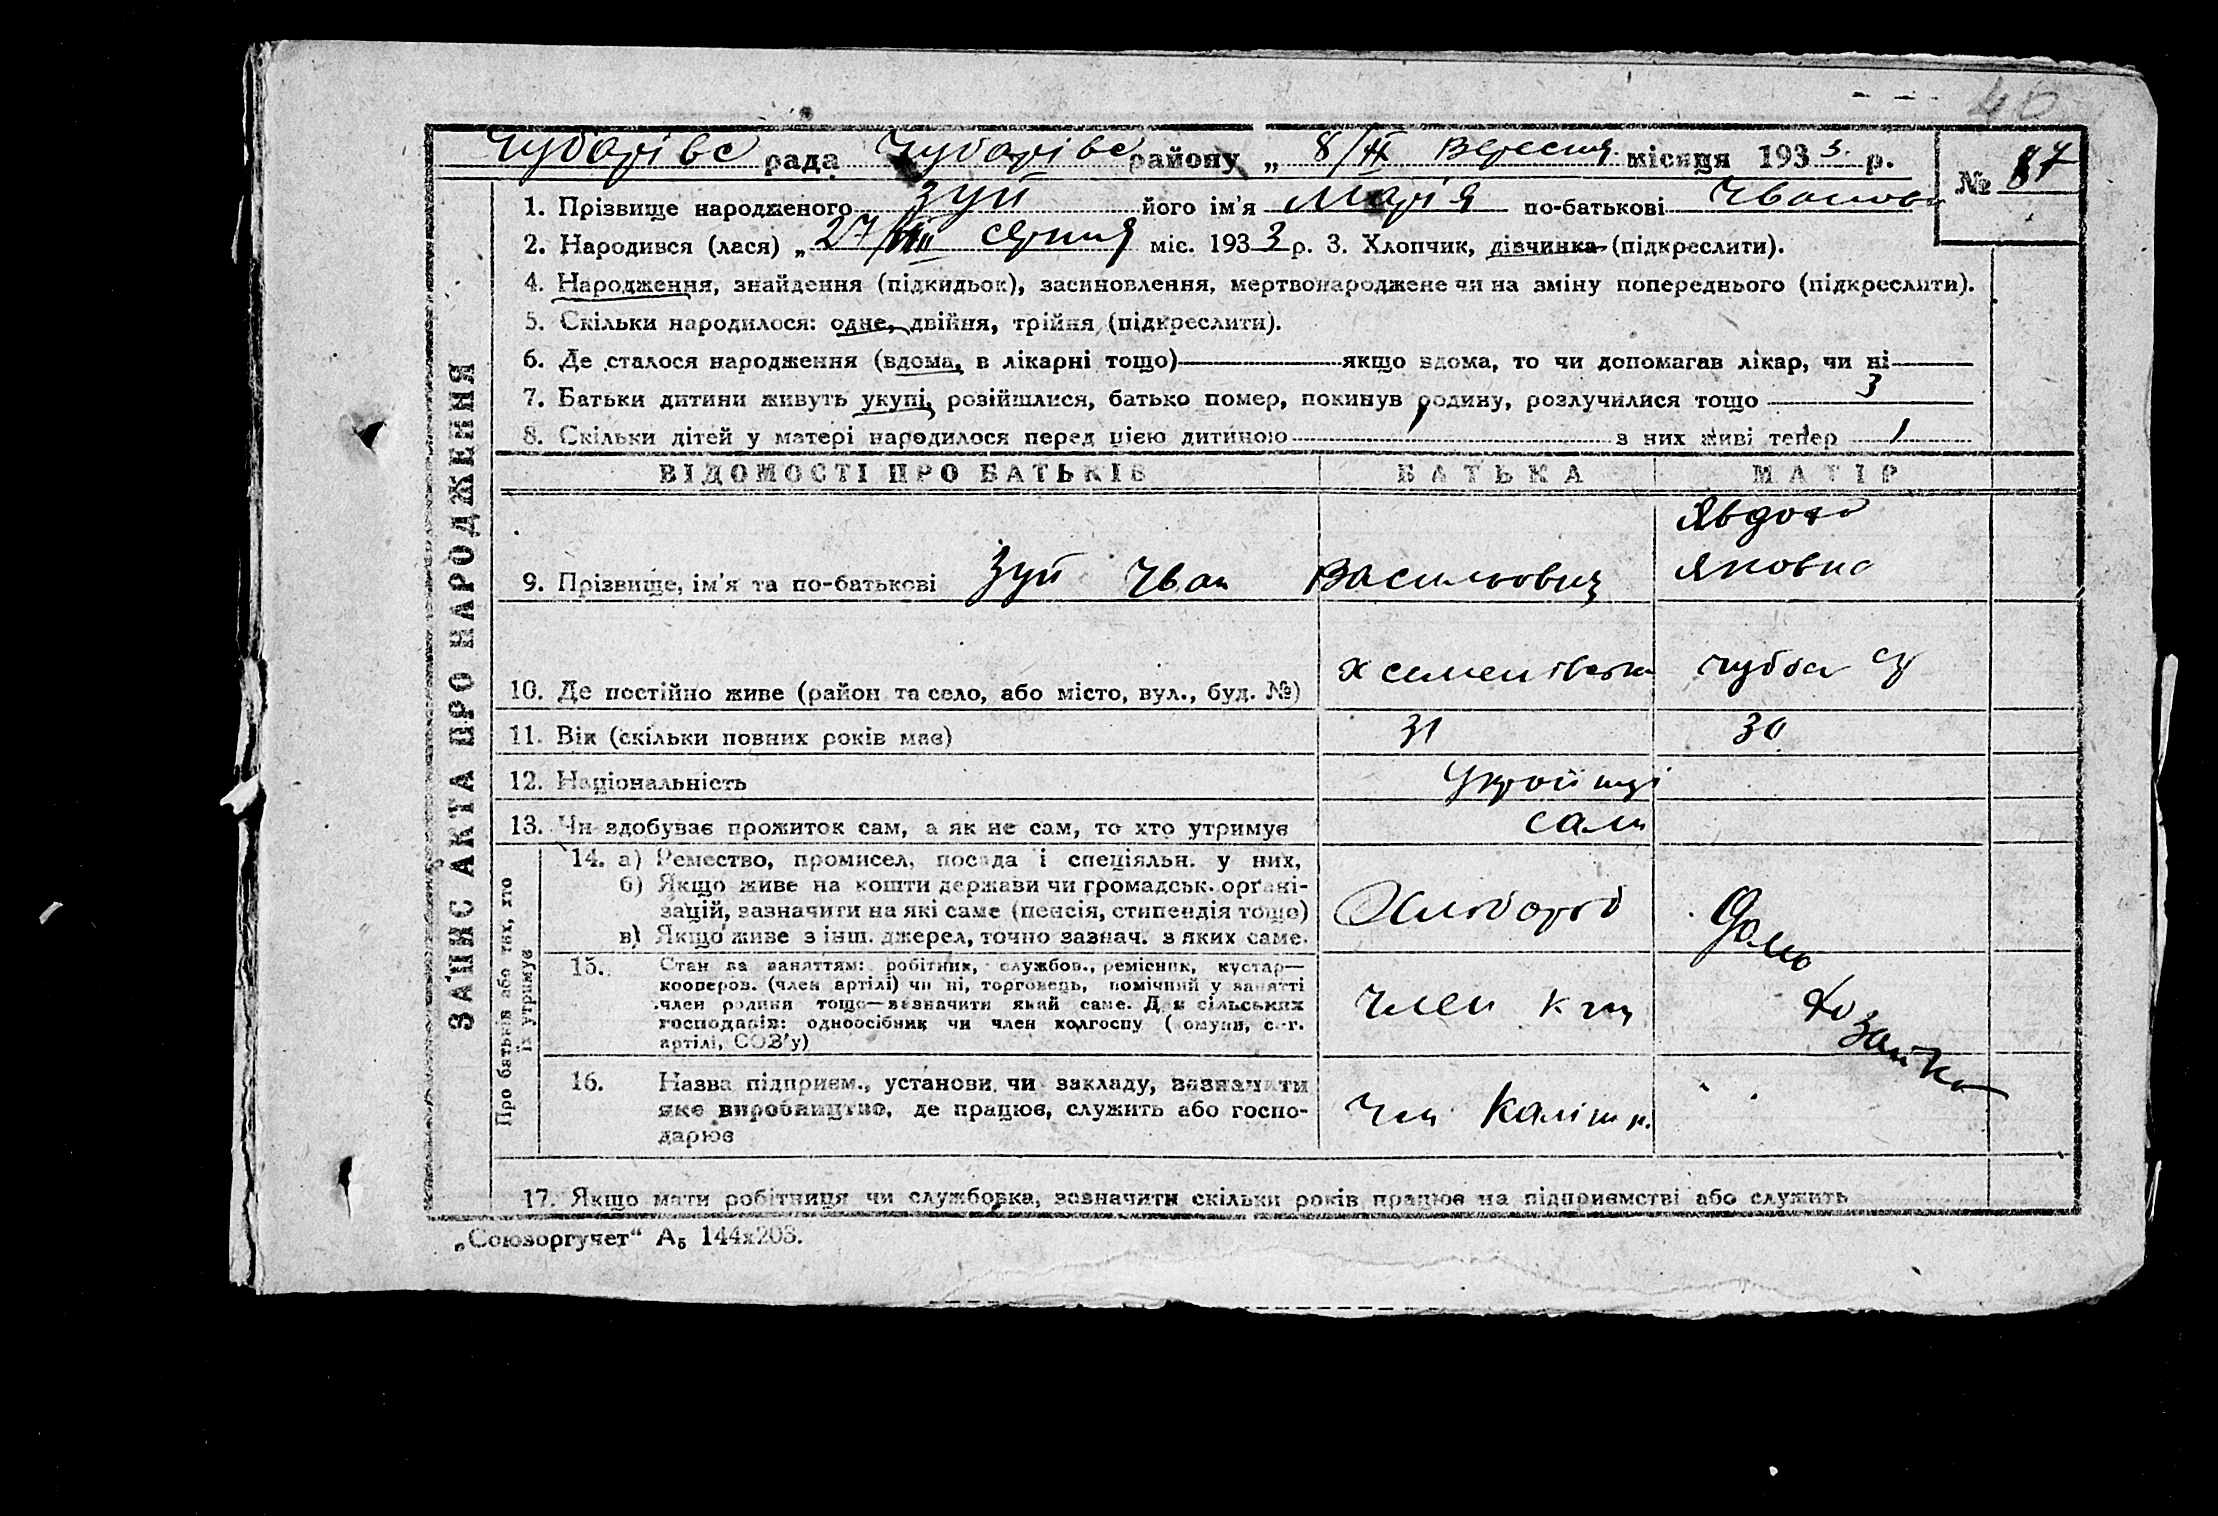 46
Чубарівс рада Чубарівс району „ 8/IX вересня місяця 1933 р.
№ 87
1. Прізвище народженого Зуй його ім'я Марія по-батькові Іванов
2. Народився (лася) „ 27/VIII серпня міс. 1933 р. 3. Хлопчик, дівчинка (підкреслити).
4. Народження, знайдення (підкидьок), засиновлення, мертвонароджене чи на зміну попереднього (підкреслити).
5. Скільки народилося: одне, двійня, трійня (підкреслити).
6. Де сталося народження (вдома, в лікарні тощо) якщо вдома, то чи допомагав лікар, чи ні
7. Батьки дитини живуть укупі, розійшлися, батько помер, покинув родину, розлучилися тощо 3
8. Скільки дітей у матері народилося перед цією дитиною 1 з них живі тепер 1
ЗАПИС АКТА ПРО НАРОДЖЕННЯ
ВІДОМОСТІ ПРО БАТЬКІВ БАТЬКА МАТІР
9. Прізвище, ім'я та по-батькові Зуй Іван Васильович Явдокі Яковна
10. Де постійно живе (район та село, або місто, вул., буд. №) х семенівська
11. Вік (скільки повних років має) 31 30
12. Національність Українці
13. Чи здобуває прожиток сам, а як не сам, то хто утримує сами
Про батьків або тих, хто їх утримує
14. а) Ремество, промисел, посада і спеціяльн. у них, Хлібороб Домо
б) Якщо живе на кошти держави чи громадськ. орґані-
зацій, зазначити на які саме (пенсія, стипендія тощо)
в) Якщо живе з інш. джерел, точно зазнач. з яких саме.
15. Стан за заняттям: робітник, службов., ремісник, кустар—
кооперов. (член артілі) чи ні, торговець, помічний у занятті
член родини тощо—визначити який саме. Для сільських
господарів: одноосібник чи член колгоспу (комуни, с.-г.
артілі, СОЗ'у) член
16. Назва підприєм., установи чи закладу, зазначити
яке виробництво, де працює, служить або госпо-
дарює
17. Якщо мати робітниця чи службовка, зазначити скільки років працює на підприємстві або служить
„Союзоргучет“ А₅ 144х203.